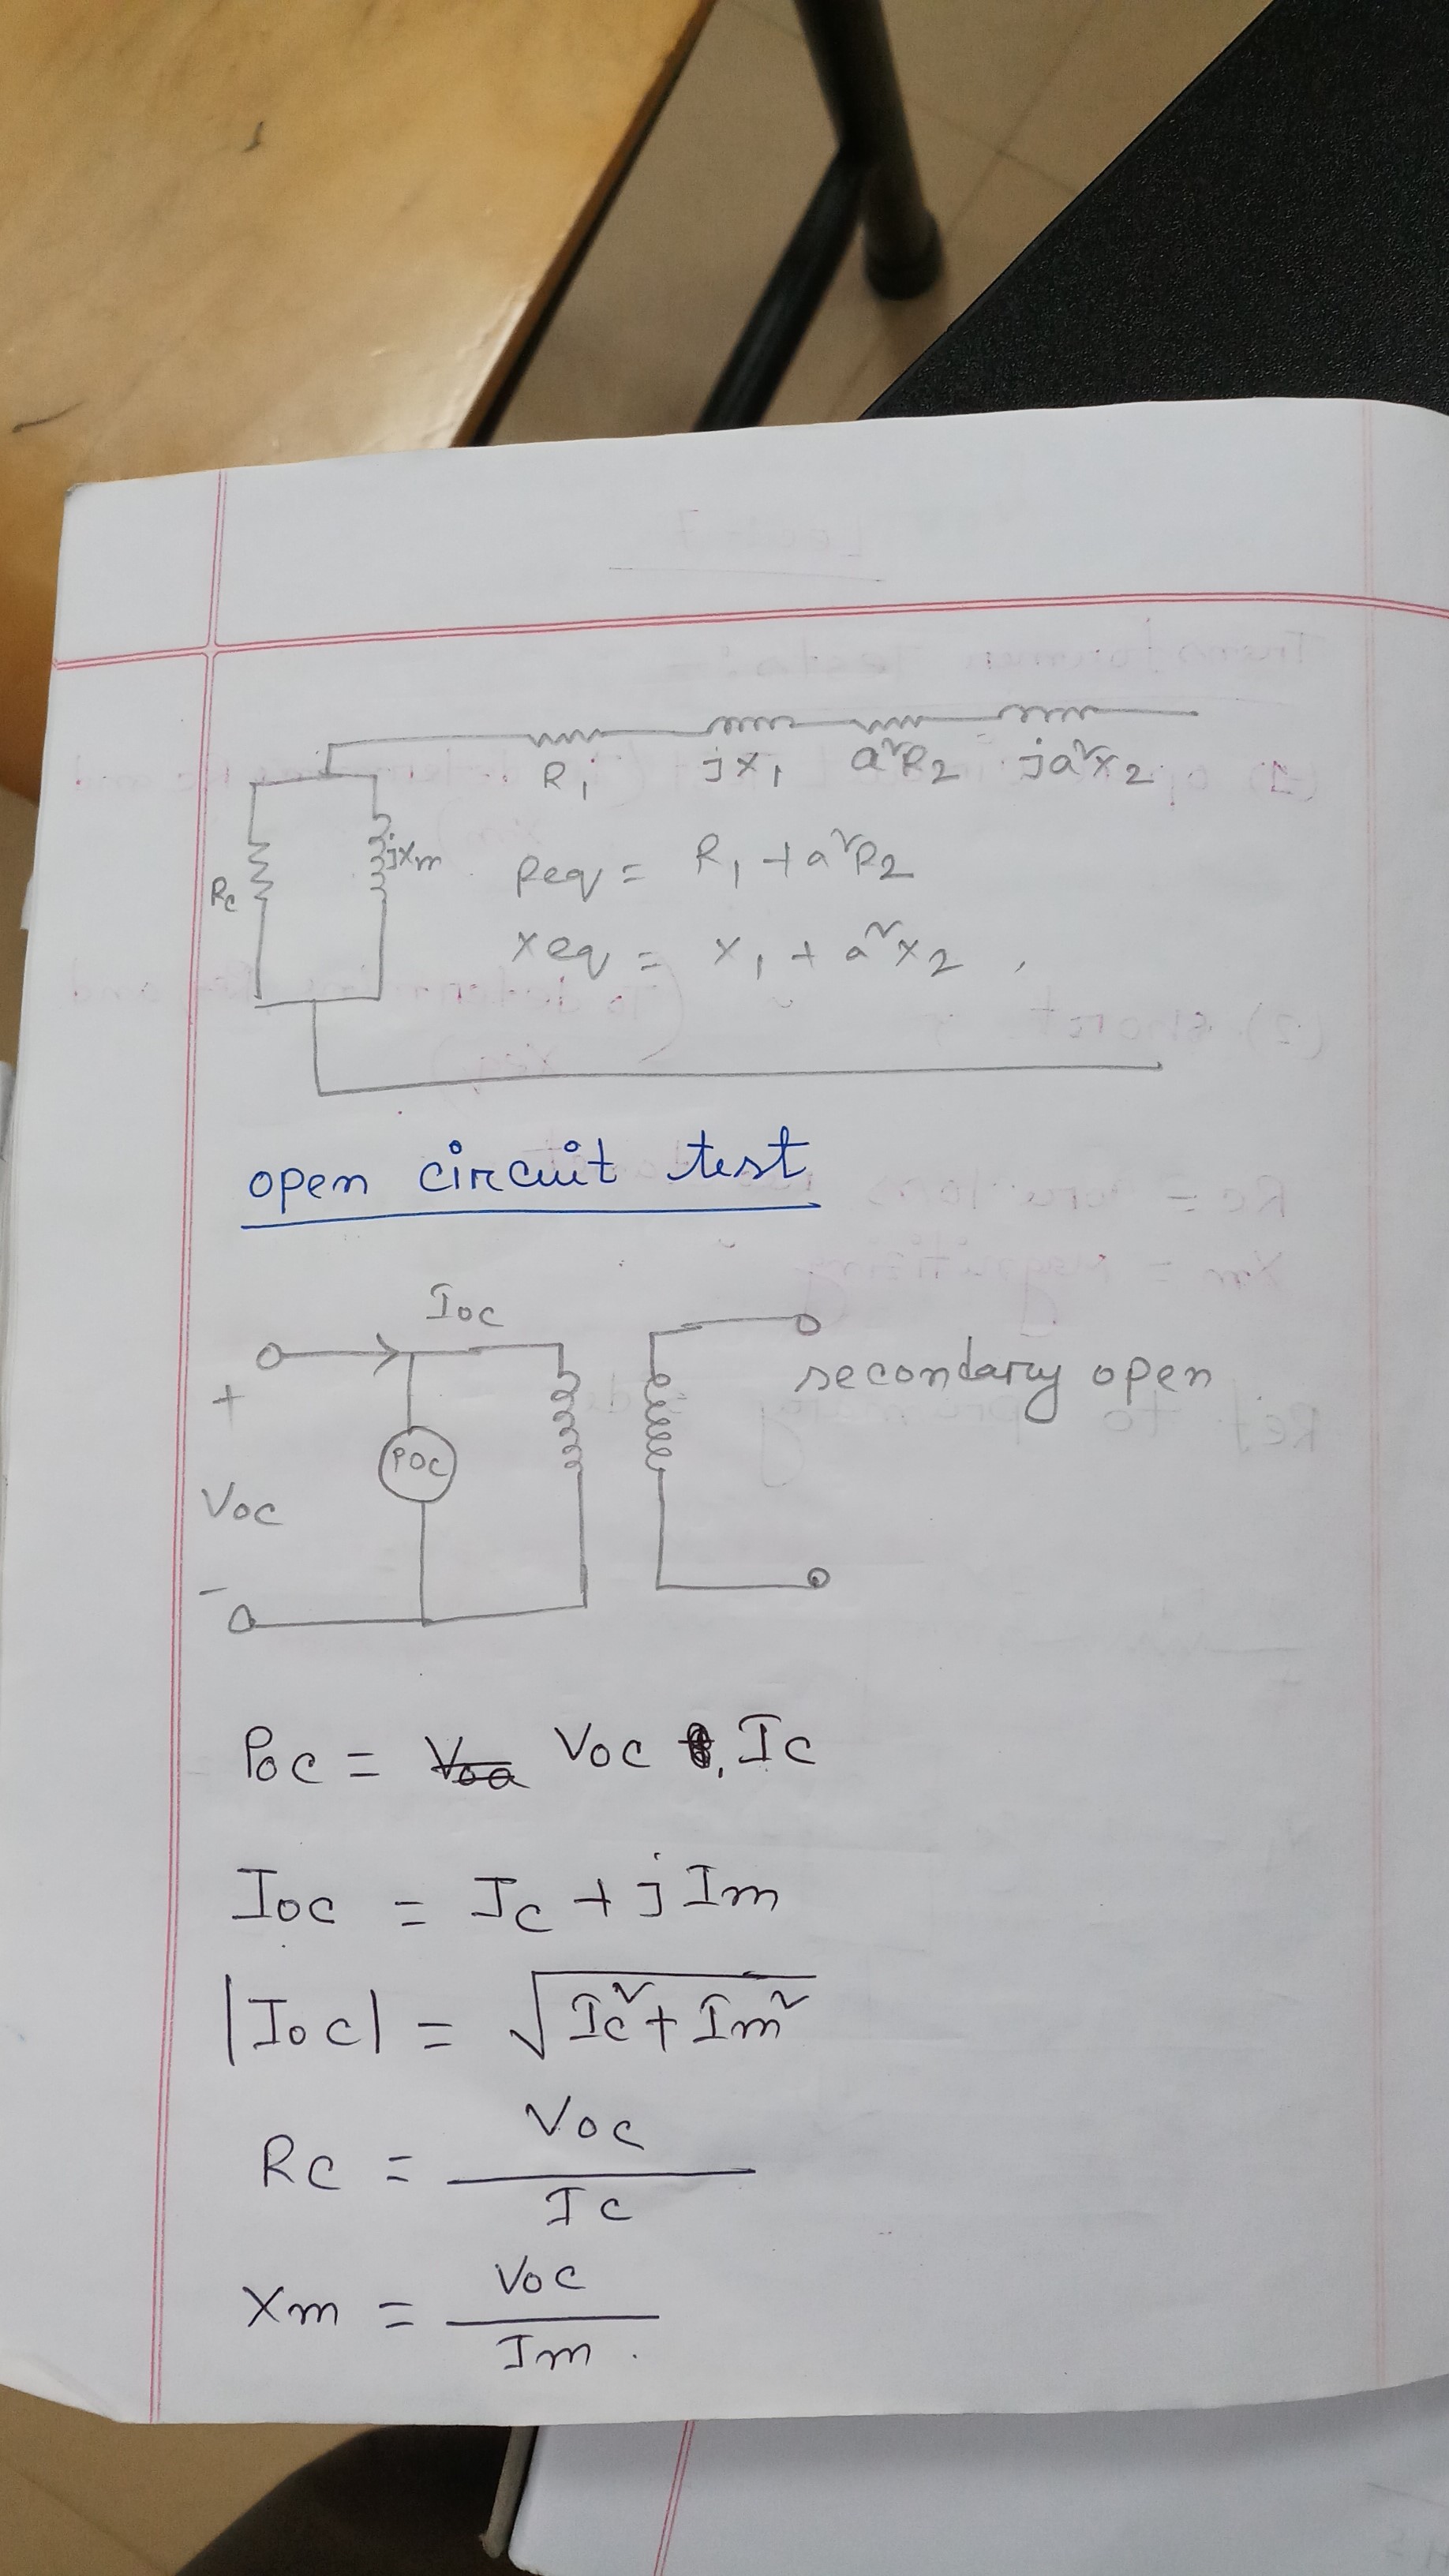 R₁ jx₁ a²R₂ ja²x₂
Rc jxm
Req = R₁ + a²R₂
xeq = x₁ + a²x₂ ,
open circuit test
Ioc
+
secondary open
POC
Voc
-
Poc = Voc . Ic
Ioc = Ic + j Im
|Ioc| = √Ic² + Im²
Rc = Voc / Ic
Xm = Voc / Im .